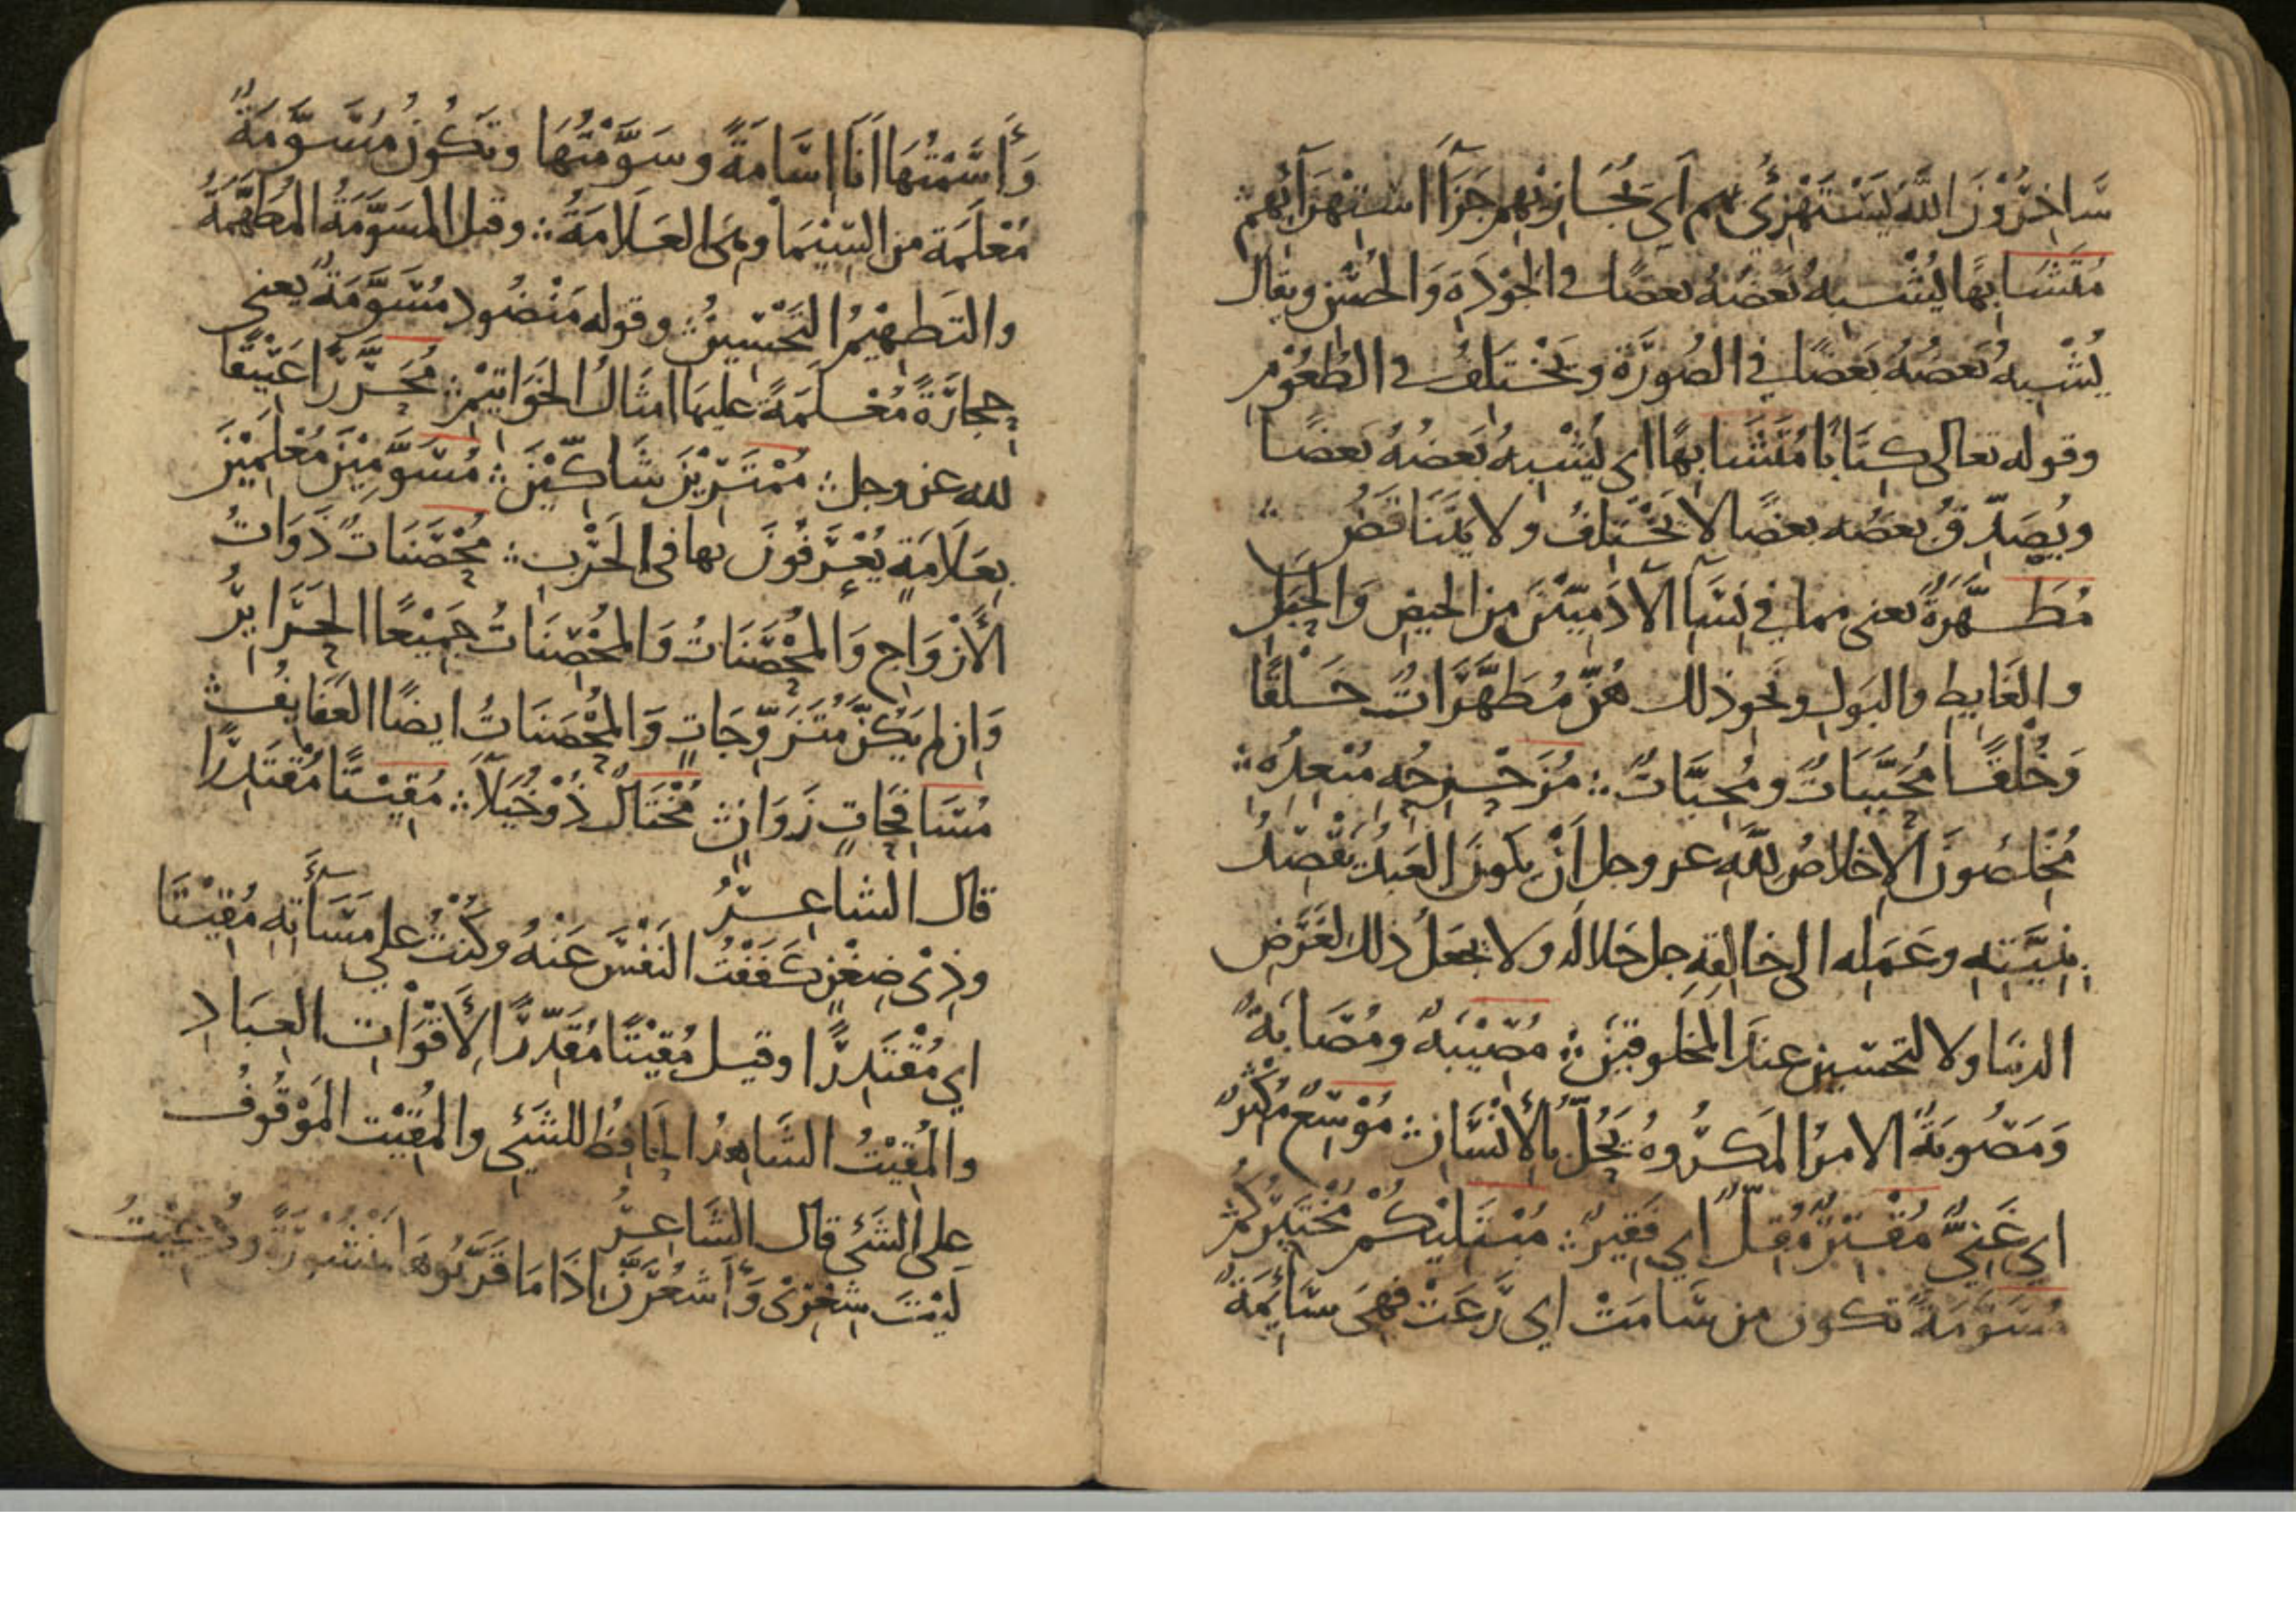 سَاخِرُوْنَ اللّٰه يَسْتَهْزِئُ بهم اَي يُجَازِيْهِم جَزَآءَ اسْتِهْزَآئِهِم ∴
مُتَشَابِهًا يُشْبِهُ بَعْضُهُ بَعضًا فى الجَوْدَةِ وَالحُسْنِ ويقال
يُشْبِهُ بَعضُهُ بَعضًا في الصُورَةِ وَيَخْتَلِفُ فى الطُعُوْمِ
وقوله تعالى كِتَابًا مُتَشَابِهًا اى يُشْبِهُ بَعضُهُ بَعضًا
ويُصَدِّقُ بعضُه بعضًا لا يَخْتَلِفُ ولا يَتَنَاقَضُ ∴
مُطَهَّرَةٌ يعنى مما في نِسَآءِ الآدَمِيّيْنَ من الحيضِ وَالحَبَلِ
والغَايِطِ والبَولِ ونَحْوِ ذلك هُنَّ مُطَهَّرَاتٌ خَلْقًا
وَخُلْقًا مُحَبَّبَاتٌ ومُحِبَّاتٌ ∴ مُزَحْزِحِه مُبْعِدُه ∴
مُخْلِصُونَ الاِخلاصُ لِلّٰهِ عز وجل اَنْ يكونَ العَبدُ يَقْصِدُ
بِنِيَّتِهِ وعَمَلِه الى خالِقِهِ جل جلاله ولا يجعل ذلك لِغَرَضِ
الدنيا ولا لتحسين عندَ المخلوقِيْنَ ∴ مُصِيْبَةٌ ومُصَابَةٌ
وَمَصُوبَةٌ الامرُ المَكرُوهُ يَحُلُّ بِالأِنْسَانِ ∴ مُوْسِعٌ مُكْثِرٌ
اي غَنِيٌّ مُقْتِرٌ مُقِلٌّ اي فَقِيرٌ ∴ مُبْتَلِيْكُمْ مُخْتَبِرُكُمْ
مُسَوَّمَةً تكون من سَامَتْ اى رَعَتْ فهِيَ سَائِمَةٌ
وَأَسَمْتُهَا اَنَا اِسَامَةً وسَوَّمْتُهَا وتَكُونُ مُسَوَّمَةً
مُعْلَمَة من السِّيْمَا وهى العَلَامَةُ ∴ وقيل المسَوَّمَةُ المُطَهَّمَةُ
والتَطهِيْمُ التَحْسِيْنُ ∴ وقوله مَنْضُودٍ مُسَوَّمَةً يعنى
حِجارَةً مُعْلَمَةً عليها اَمثَالُ الخَوَاتِيْمِ ∴ مُحَرَّرًا عَتِيْقًا
لله عز وجل ∴ مُمْتَرِيْنَ شَاكِّيْنَ ∴ مُسَوِّمِيْنَ مُعْلِمِيْنَ
بِعَلَامَةٍ يُعْرَفُونَ بها فى الحَرْبِ ∴ مُحْصَنَاتٌ ذَوَاتُ
الأَزْوَاجِ وَالمُحْصَنَاتُ وَالمُحْصِنَاتُ جَمِيْعًا الحَرَايِرُ
وَاِن لم يَكُنَّ مُتَزَوِّجَاتٍ وَالمُحْصَنَاتُ ايضًا العَفَايِفُ ∴
مُسَافِحَاتٍ زَوَانٍ ∴ مُخْتَالٌ ذُوْ خُيَلَآءَ ∴ مُقِيْتًا مُقْتَدِرًا
قال الشاعِرُ
وذِىْ ضِغْنٍ كَفَفْتُ النَفْسَ عَنْهُ وكُنْتُ على مَسَأَتِهِ مُقِيْتَا
اي مُقْتَدِرًا وقيل مُقِيْتًا مُقَدِّرًا لِأَقْوَاتِ العِبَادِ
والمُقِيْتُ الشاهِدُ الحَافِظُ للشَيْئِ والمُقِيْت المَوْقُوفُ
على الشَئِ قال الشَاعِرُ
لَيْتَ شِعْرِىْ وَأَشْعُرَنَّ اِذَا مَا قَرَّبُوهَا مَنْشُوْرَةً وَدُعِيْتُ